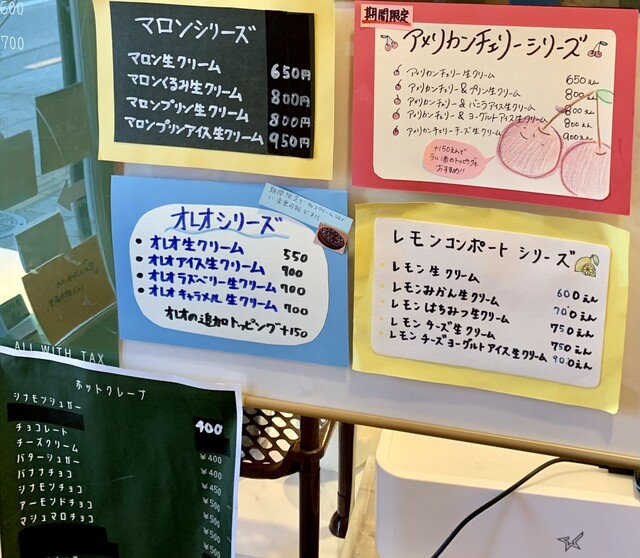 600
700
マロンシリーズ
マロン生クリーム 650円
マロンくるみ生クリーム 800円
マロンプリン生クリーム 800円
マロンプリンアイス生クリーム 950円
期間限定
アメリカンチェリーシリーズ
アメリカンチェリー生クリーム 650えん
アメリカンチェリー&プリン生クリーム 800えん
アメリカンチェリー&バニラアイス生クリーム 800えん
アメリカンチェリー&ヨーグルトアイス生クリーム 800えん
アメリカンチェリーチーズ生クリーム 900えん
+150えんで
のトッピングも
おすすめ!!
オレオシリーズ
オレオ生クリーム 550
オレオアイス生クリーム 700
オレオラズベリー生クリーム 700
オレオキャラメル生クリーム 700
オレオの追加トッピング+150
レモンコンポートシリーズ
レモン生クリーム 600えん
レモンみかん生クリーム 700えん
レモンはちみつ生クリーム 750えん
レモンチーズ生クリーム 750えん
レモンチーズヨーグルトアイス生クリーム 900えん
ALL WITH TAX
ホットクレープ
シナモンシュガー
チョコレート 400
チーズクリーム
バターシュガー ¥400
バナナチョコ ¥400
シナモンチョコ ¥450
アーモンドチョコ ¥500
マシュマロチョコ ¥500
¥500
¥500